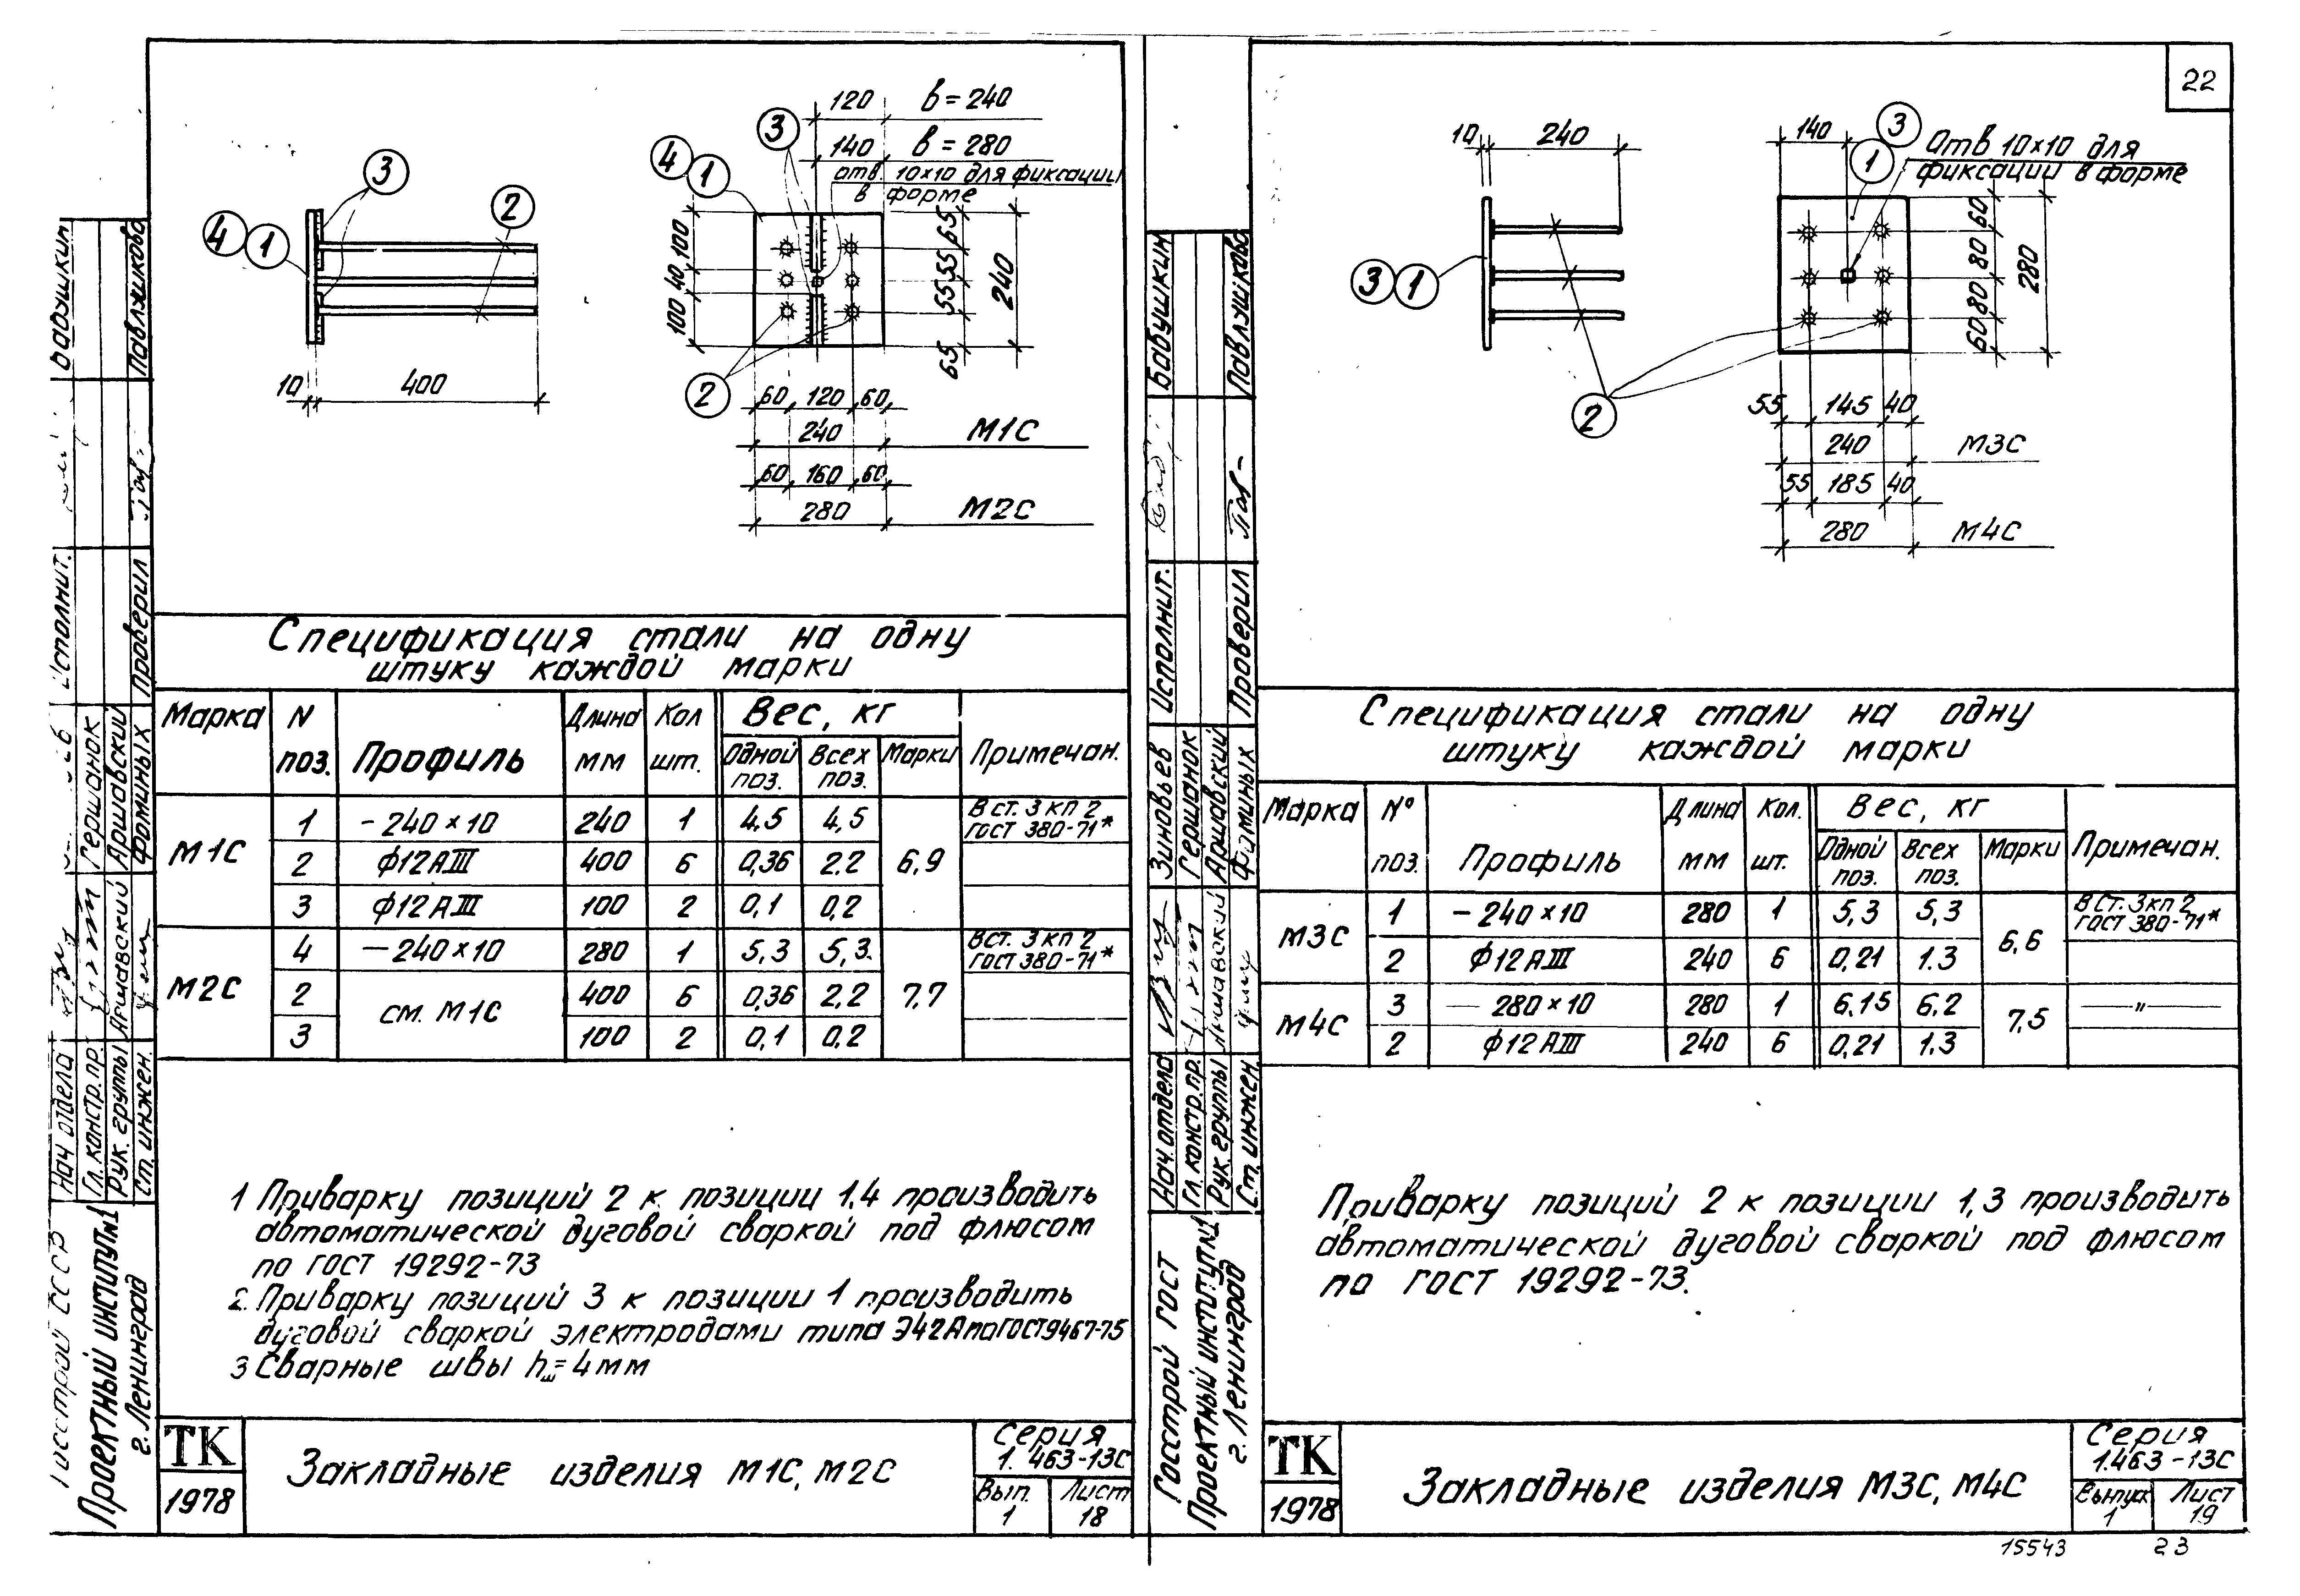 22
120
в = 240
140
в = 280
отв. 10×10 для фиксации
в форме
3
4 1
3
2
4 1
2
100
40
100
65
55
55
65
240
10
400
60 120 60
240
М1С
60 160 60
280
М2С
Спецификация стали на одну
штуку каждой марки
Марка N поз. Профиль Длина мм Кол шт. Вес, кг Примечан.
Одной поз. Всех поз. Марки
М1С 1 – 240×10 240 1 4,5 4,5 6,9 В ст. 3 кп 2 ГОСТ 380-71*
2 ф12АIII 400 6 0,36 2.2
3 ф12АIII 100 2 0,1 0,2
М2С 4 — 240×10 280 1 5,3 5,3. 7,7 Вст. 3 кп 2 ГОСТ 380-71*
2 см. М1С 400 6 0,36 2,2
3 100 2 0,1 0,2
1 Приварку позиций 2 к позиции 1,4 производить
автоматической дуговой сваркой под флюсом
по ГОСТ 19292-73
2. Приварку позиций 3 к позиции 1 производить
дуговой сваркой электродами типа Э42А по ГОСТ 9467-75
3 Сварные швы hш= 4мм
ТК
1978
Закладные изделия М1С, М2С
Серия
1. 463-13С
Вып. 1
Лист 18
Проектный институт №1
г. Ленинград
Нач отдела
Гл. констр. пр.
Рук. группы Аршавский
Ст. инжен. Фоминых
Гершанок
Исполнит.
Проверил Павлушкова
10
240
140
3
1
Отв 10×10 для
фиксации в форме
3 1
2
60
80
80
60
280
55 145 40
240
М3С
55 185 40
280
М4С
Спецификация стали на одну
штуку каждой марки
Марка № поз. Профиль Длина мм Кол. шт. Вес, кг Примечан.
Одной поз. Всех поз. Марки
М3С 1 – 240×10 280 1 5,3 5,3 6,6 В Ст. 3кп 2 ГОСТ 380-71*
2 ф12АIII 240 6 0,21 1.3
М4С 3 — 280×10 280 1 6,15 6,2 7,5 —"—
2 ф12АIII 240 6 0,21 1.3
Приварку позиций 2 к позиции 1,3 производить
автоматической дуговой сваркой под флюсом
по ГОСТ 19292-73.
ТК
1978
Закладные изделия М3С, М4С
Серия
1.463-13С
Выпуск 1
Лист 19
Госстрой ГОСТ
Проектный институт №1
г. Ленинград
Нач. отдела Зиновьев
Гл. констр. пр. Гершанок
Рук. группы Аршавский
Ст. инжен. Фоминых
Исполнит. Бабушкин
Проверил Павлушкова
15543
23